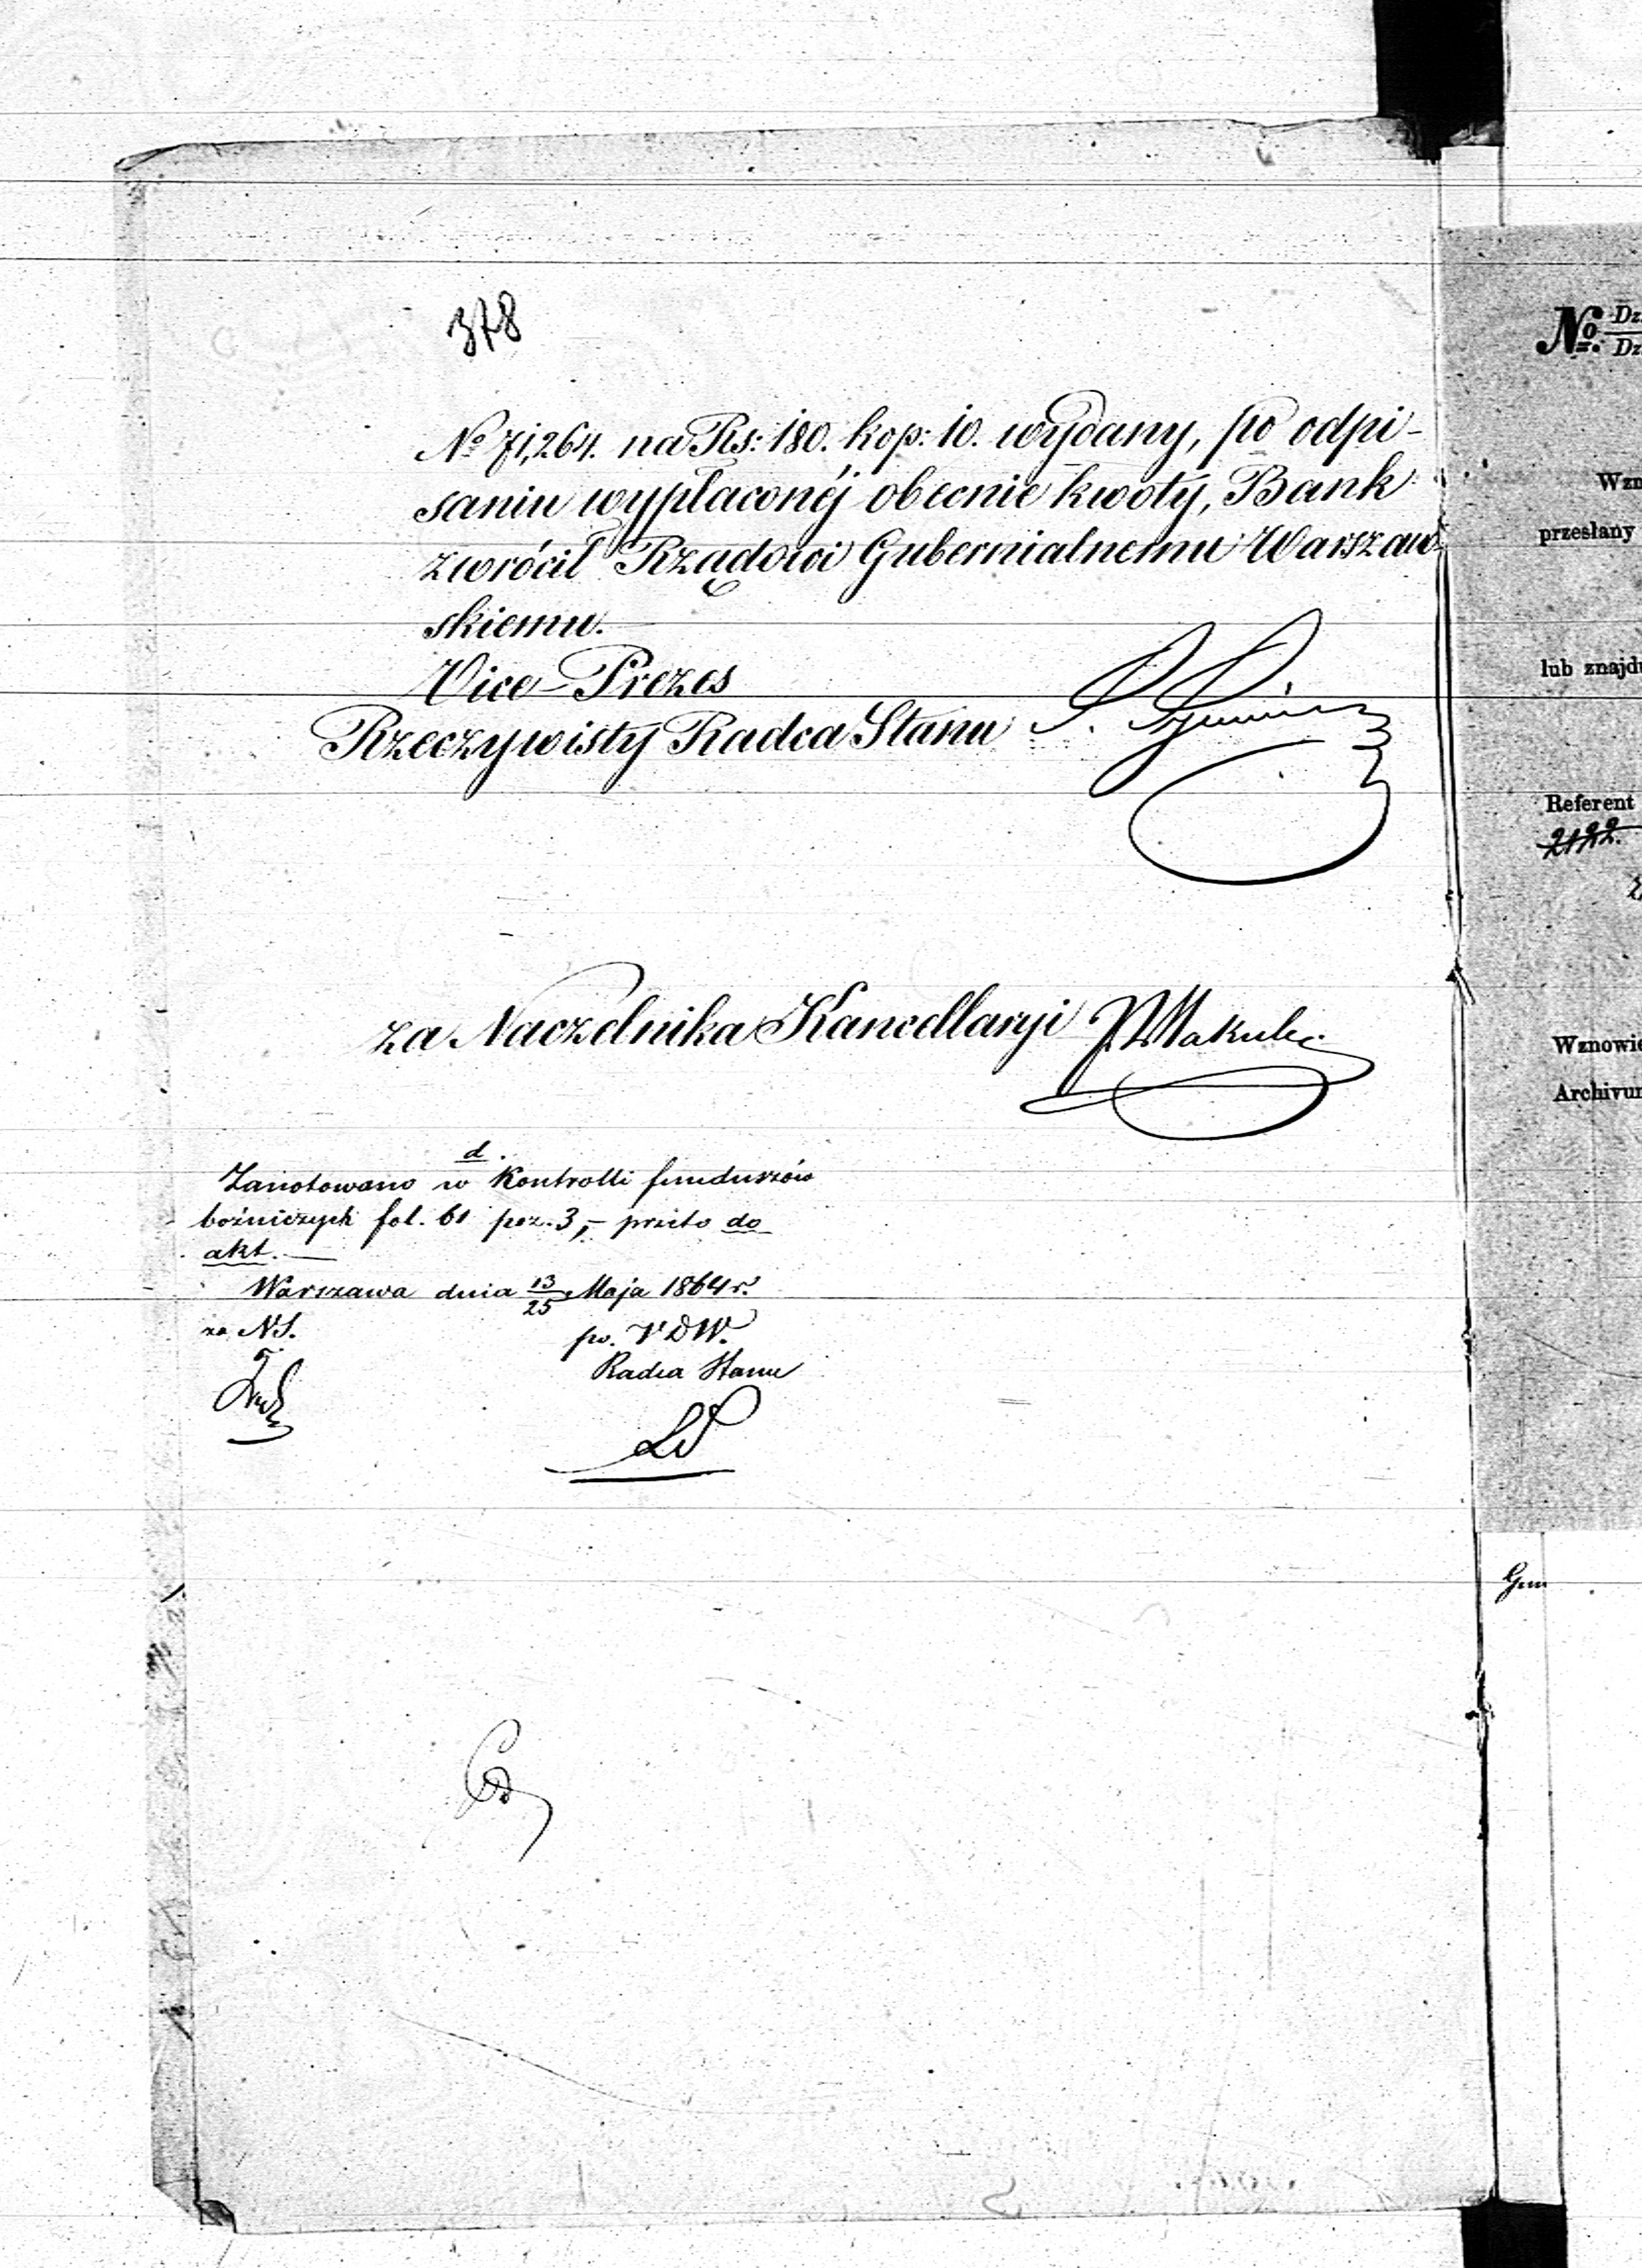 378
№ 71,264. na Rs: 180. kop: 10. wydany, po odpi-
saniu wypłaconéj obecnie kwoty, Bank
zwrócił Rządowi Gubernialnemu Warszaw-
skiemu.
Vice-Prezes
Rzeczywisty Radca Stanu
za Naczelnika Kancellaryi
d.
Zanotowano w Kontrolli funduszów
bożniczych fol. 61 poz. 3,- przeto do
akt.
Warszawa dnia 13/25 Maja 1864 r.
za NS.
po. VDW.
Radca Stanu
№ Dz.
Dz
Wzn
przesłany
lub znajd
Referent
2122.
Wznowie
Archivum